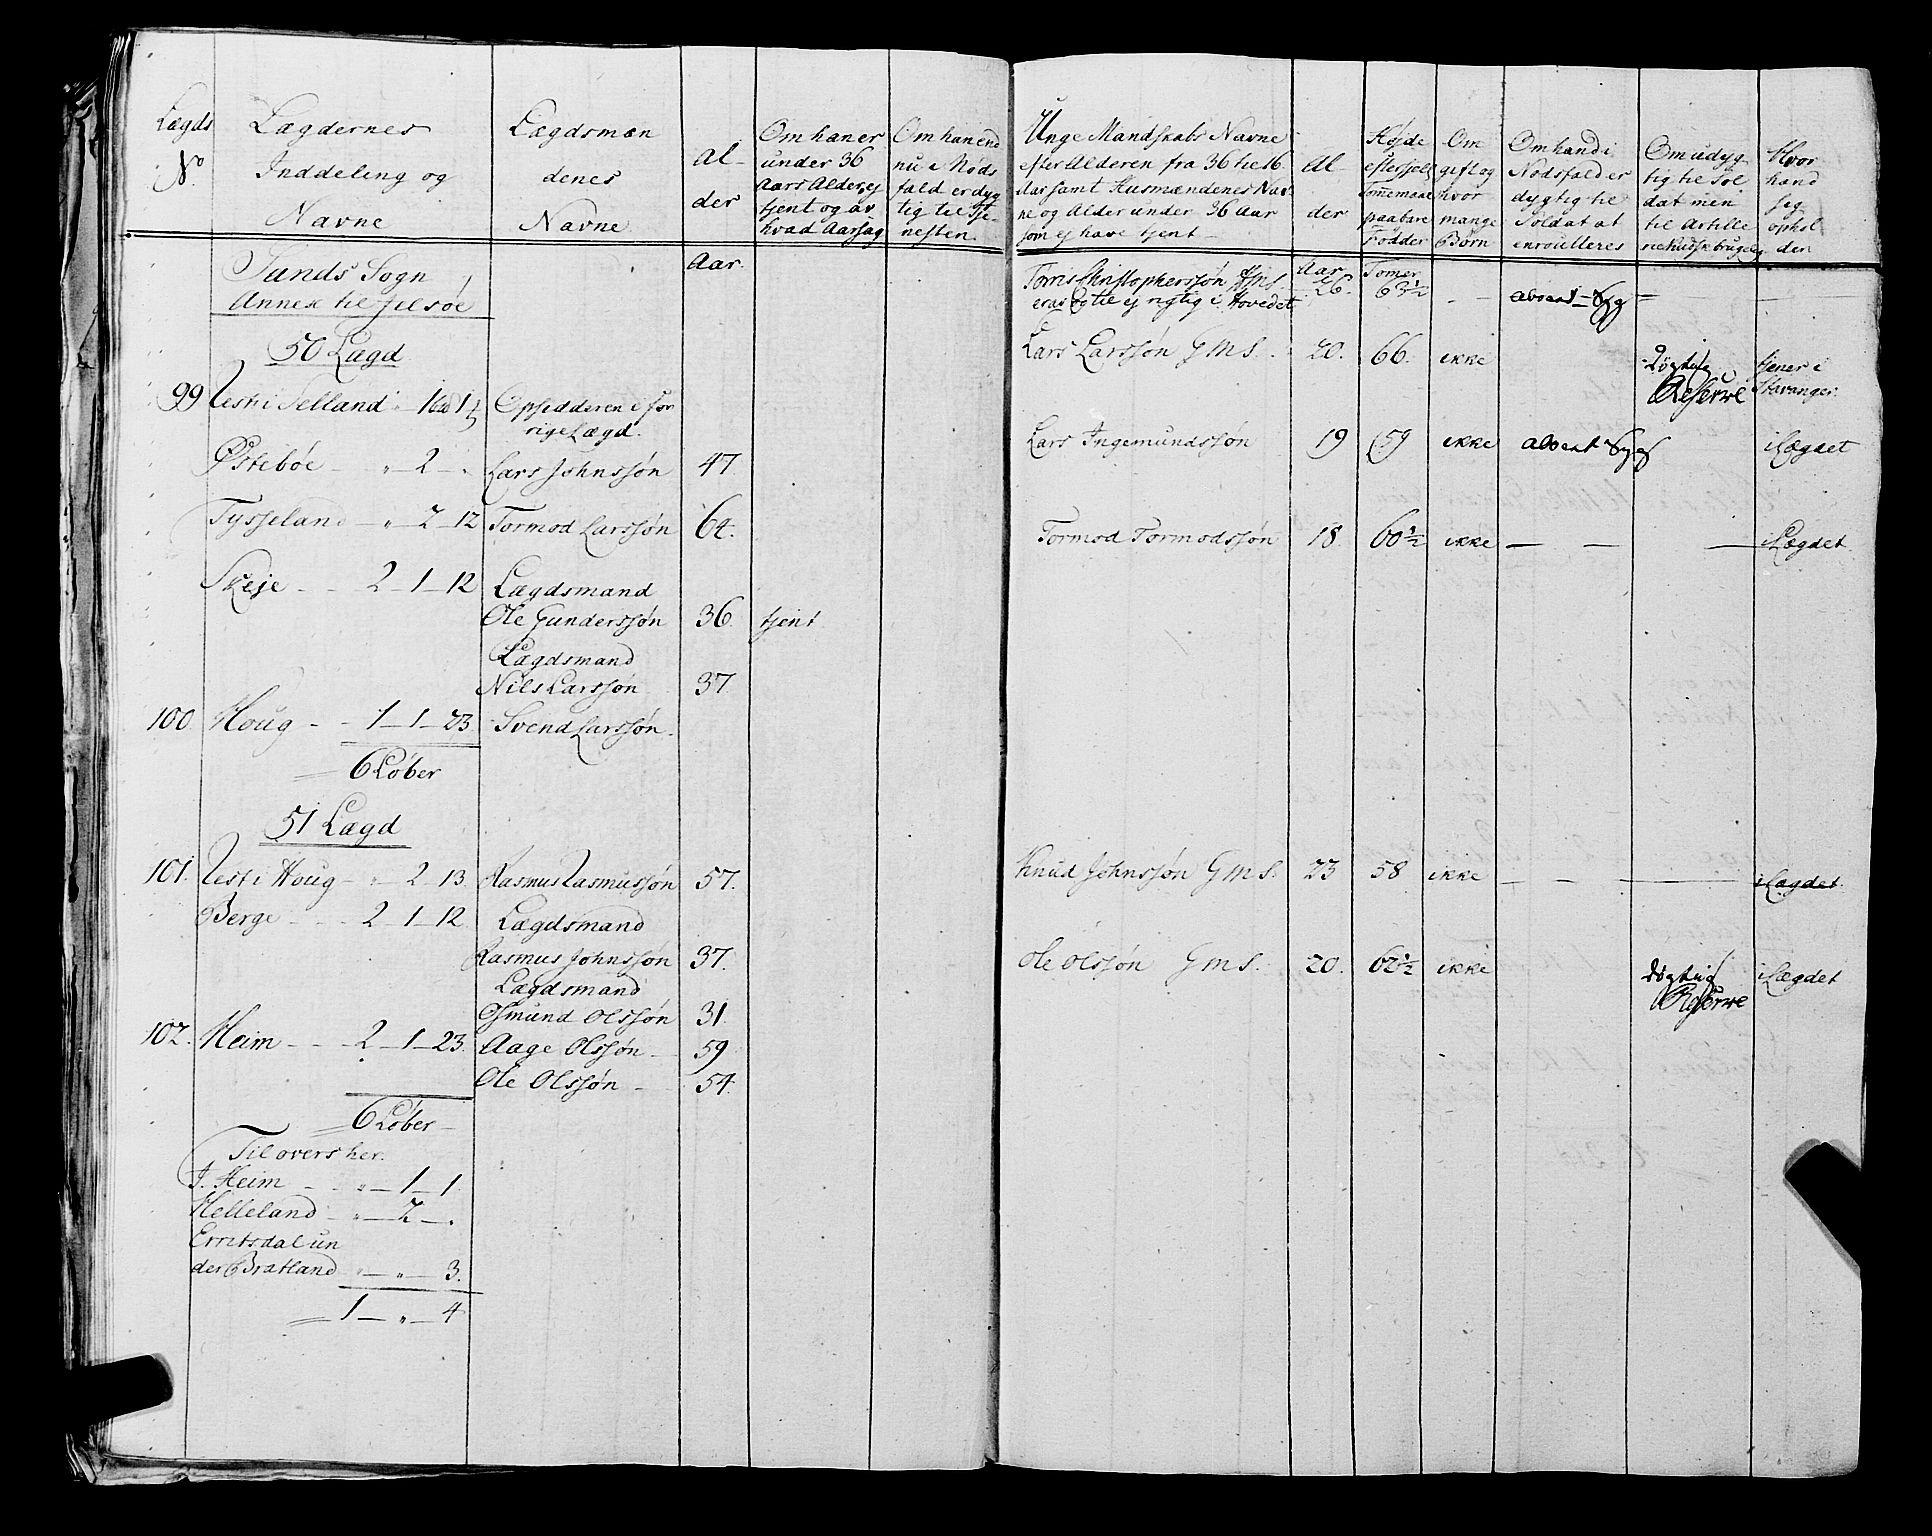 Lægds
No.
Lægdernes
Inddeling og
Navne
Lægdsmæn
denes
Navne
Al-
der
Om han er
under 36
Aars Alder, ej
tjent og av
hvad Aarsag
Om han end
nu i Nøds
fald er dyg
tig til tje-
nesten.
Unge Mandskabs Navne
efter Alderen fra 36 til 16
Aar samt Husmændenes Nav
ne og Alder under 36 Aar
som ej have tjent
Al-
der
Højde
paabare
Fødder
Om
gift og
hvor
mange
Børn
Om hand i
Nødsfald er
dygtig til
Soldat at
enroulleres
Om udyg-
tig til Sol
dat men
til Artille
rie Kudsk bruges
Hvor
hand
sig
ophol
der
Sunds Sogn
Annex til Jelsøe
Aar.
Aar
Tomer
Christophersøn
26. 63½ absent - Syg
rigtig i Hovedet
50 Lægd
Lars Larssøn G M S. 20. 66. ikke
Døgtig
Reserve
tjener i
Stavanger.
99 Rest i Selland
Opsidderen i for
rige Lægd.
Lars Ingemundssøn 19 59 ikke absent Syg i Lægdet
Østebøe - " 2 - " Lars Johnssøn 47
Tysseland - " 2 - 12 Tormod Larssøn 64.
Tormod Tormodssøn 18. 60½ ikke - - - i Lægdet
Skeje - - 2 - 1 - 12 Lægdsmand
Ole Gunderssøn 36. tjent
Lægdsmand
Nils Larssøn 37
100 Houg - - 1 - 1 - 23 Svend Larssøn
6 Løber
51 Lægd
101. Rest i Houg - " 2 - 13. Rasmus Rasmussøn 57.
Knud Johnssøn G M S. 23 58 ikke - - - i Lægdet
Berge - - 2 - 1 - 12 Lægdsmand
Rasmus Johnssøn 37.
Ole Olssøn G M S. 20. 62½ ikke
Døgtig
Reserve
i Lægdet
Lægdsmand
Osmund Olssøn 31.
102. Heim - - 2 - 1 - 23. Aage Olssøn 59
Ole Olssøn 54.
6 Løber
Til overs her.
I. Heim - - " - 1 - 1
Helleland - " - 2 - "
Erritsdal un
der Bratland " - " - 3.
1 - " - 4